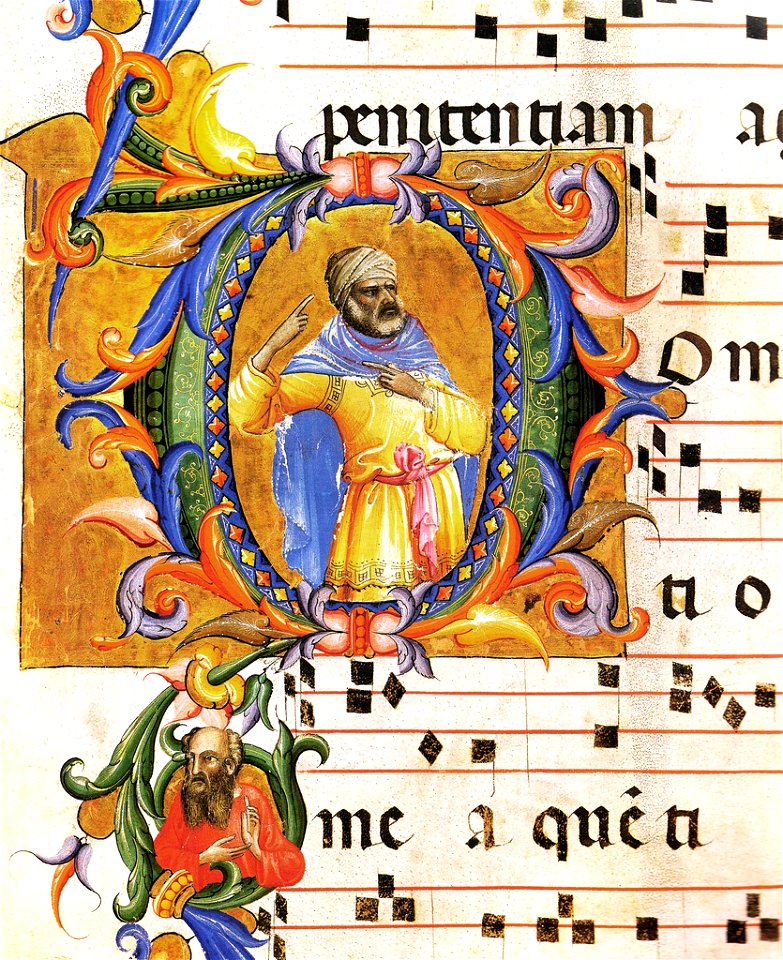 penitentiam a
Om
ti o
me a quê ti